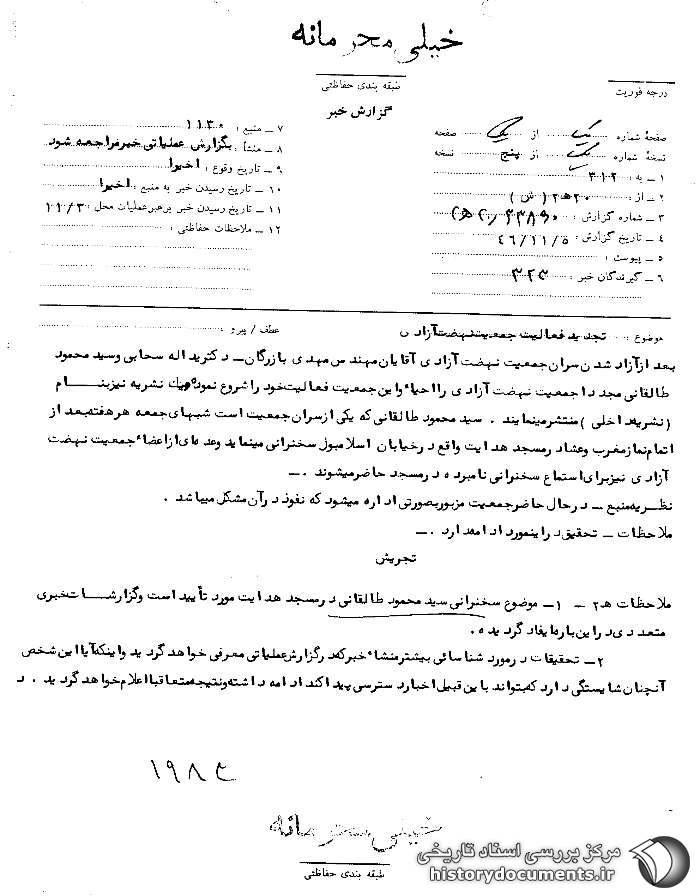 خیلی محرمانه
طبقه بندی حفاظتی
درجه فوریت
گزارش خبر
صفحهٔ شماره یک از یک صفحه
نسخهٔ شماره یک از پنج نسخه
۱ ـ به : ۳۱۲
۲ ـ از : ۲۰ ه‍ ۲ ( ش )
۳ ـ شماره گزارش :
۴ ـ تاریخ گزارش : ۴۶/۱۱/۵
۵ ـ پیوست :
۶ ـ گیرندگان خبر :
۷ ـ منبع : ۱۱۳۰
۸ ـ منشأ : بگزارش عملیاتی خبرمراجعه شود
۹ ـ تاریخ وقوع : اخیرا
۱۰ ـ تاریخ رسیدن خبر به منبع : اخیرا
۱۱ ـ تاریخ رسیدن خبر برهبرعملیات محل : ۱۱/۳
۱۲ ـ ملاحظات حفاظتی :
موضوع : تجدید فعالیت جمعیت نهضت آزادی
عطف / پیرو :
بعد ازآزاد شدن سران جمعیت نهضت آزادی آقایان مهندس مهدی بازرگان ـ دکترید اله سحابی وسید محمود
طالقانی مجددا جمعیت نهضت آزادی را احیاء واین جمعیت فعالیت خود را شروع نموده ویک نشریه نیزبنام
( نشریه داخلی ) منتشرمینمایند . سید محمود طالقانی که یکی ازسران جمعیت است شبهای جمعه هرهفته بعد از
اتمام نمازمغرب وعشاء درمسجد هدایت واقع درخیابان اسلامبول سخنرانی مینماید وعده ای ازاعضاء جمعیت نهضت
آزادی نیزبرای استماع سخنرانی نامبرده درمسجد حاضرمیشوند . ـ
نظریه منبع ـ درحال حاضرجمعیت مزبوربصورتی اداره میشود که نفوذ درآن مشکل میباشد .
ملاحظات ـ تحقیق دراینمورد ادامه دارد . ـ
تجریش
ملاحظات ه‍ ۲ ـ ۱ ـ موضوع سخنرانی سید محمود طالقانی درمسجد هدایت مورد تأیید است وگزارشات خبری
متعددی دراین باره ایفاد گردیده .
۲ ـ تحقیقات درمورد شناسائی بیشترمنشاء خبرکه درگزارش عملیاتی معرفی خواهد گردید واینکه آیا این شخص
آنچنان شایستگی دارد که بتواند باین قبیل اخباردسترسی پیدا کند ادامه داشته ونتیجه متعاقبا اعلام خواهد گردید . د
خیلی محرمانه
طبقه بندی حفاظتی
مرکز بررسی اسناد تاریخی
historydocuments.ir